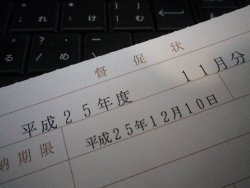 督促状
平成25年度 11月分
納期限 平成25年12月10日
れ け む
る め ろ